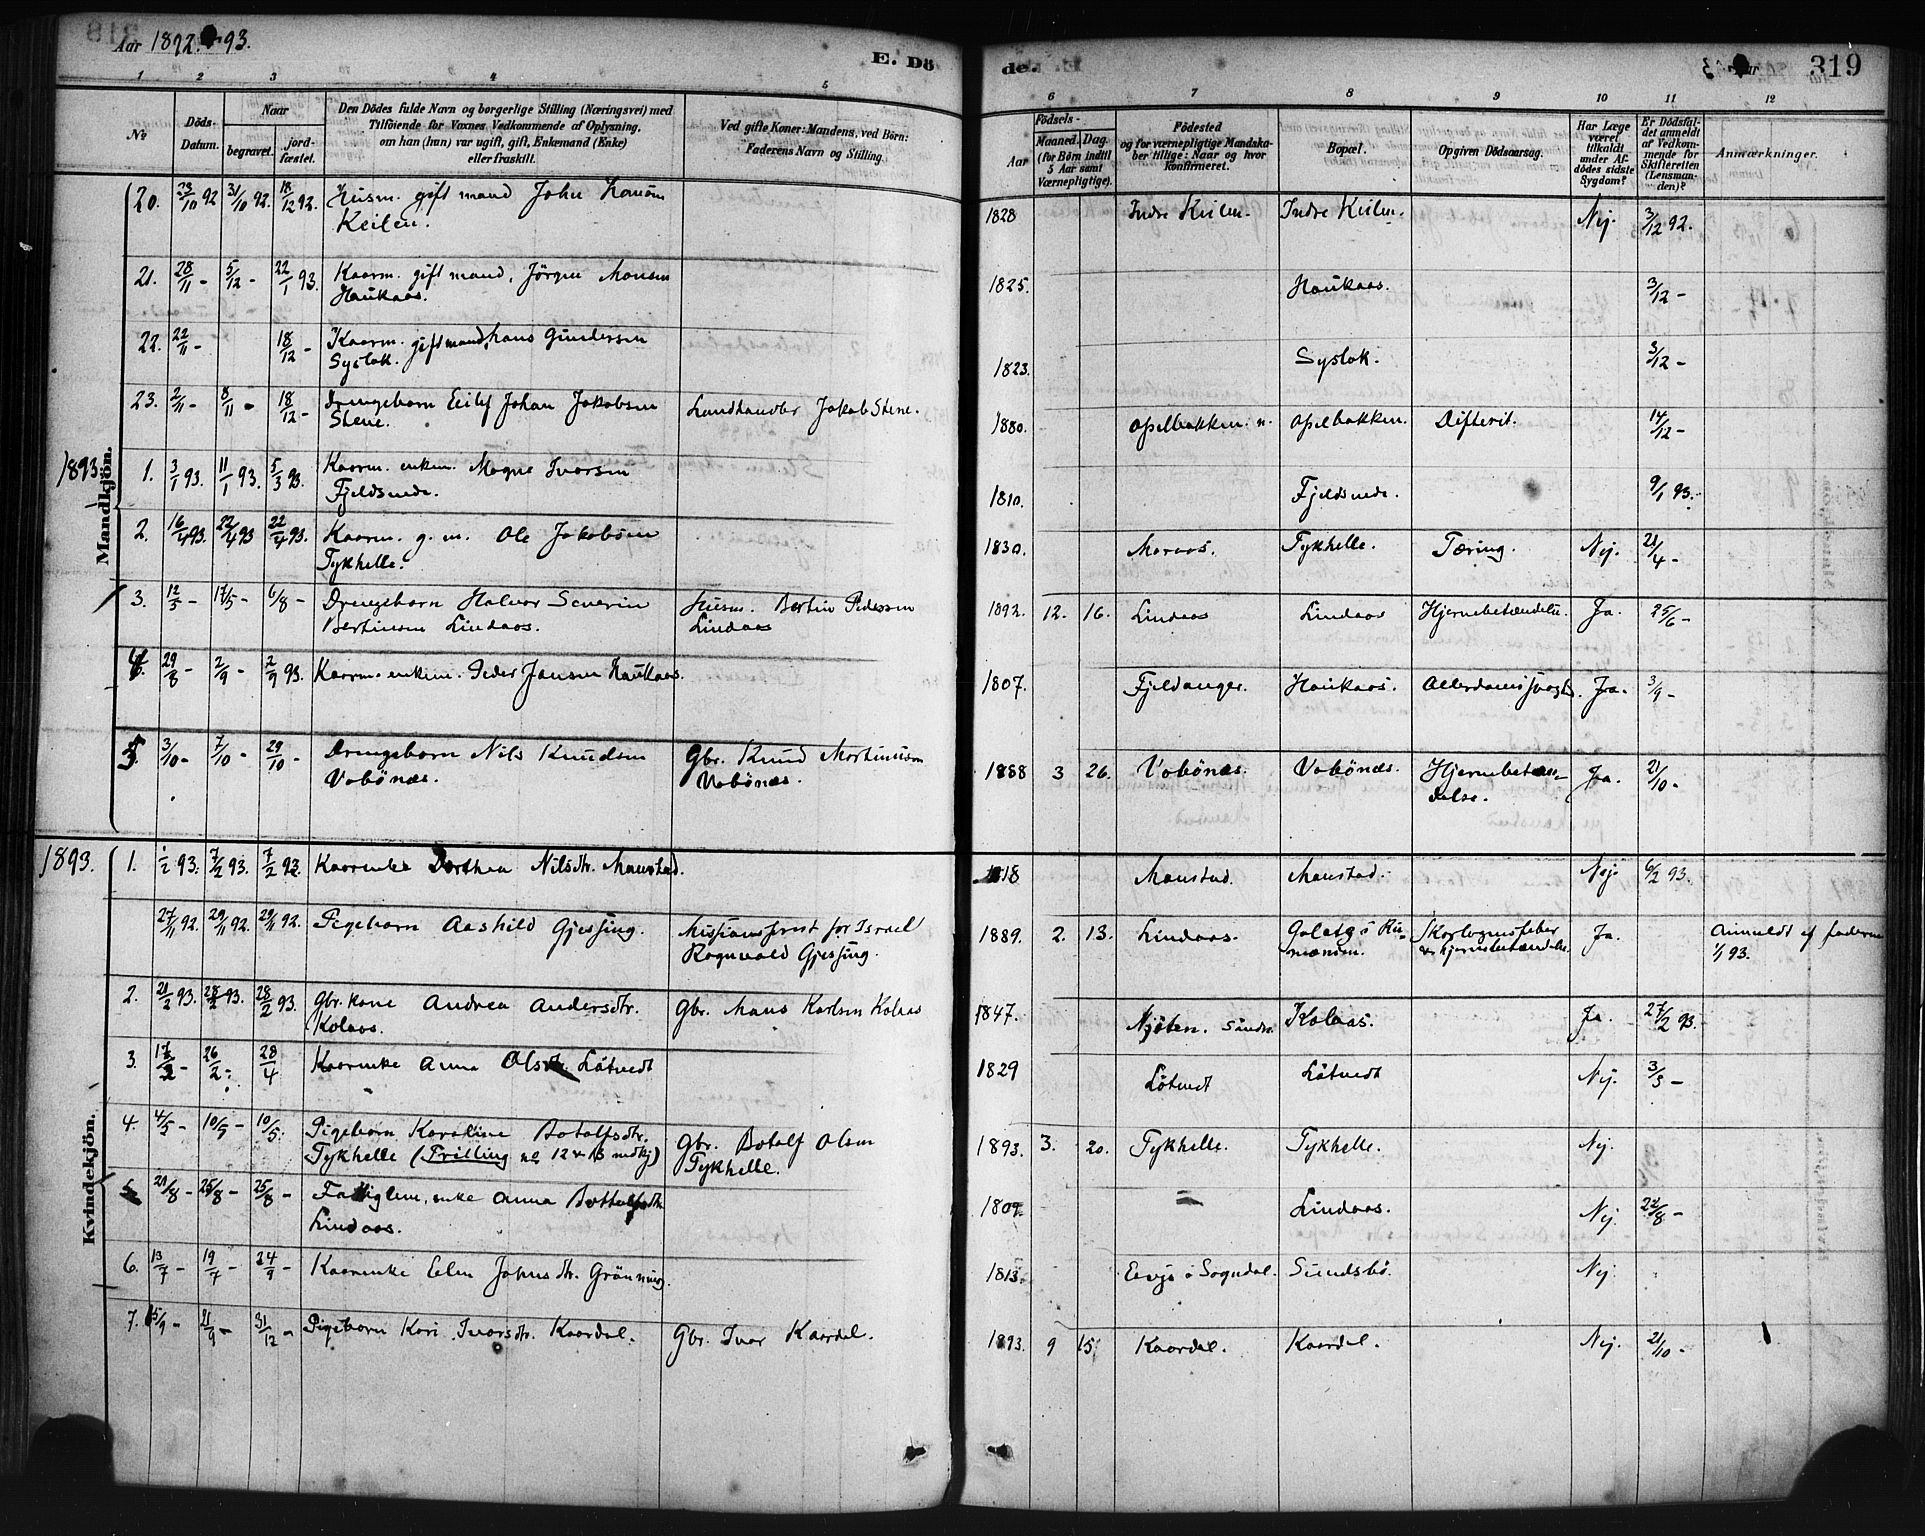 Aar 1892-93.
E. Dö
de.
319
1 2 3 4 5
6 7 8 9 10 11 12
No
Döds-Datum.
Naar
begravet.
jord-fæstet.
Den Dödes fulde Navn og borgerlige Stilling (Næringsvei) med
Tilföiende for Voxnes Vedkommende af Oplysning,
om han (hun) var ugift, gift, Enkemand (Enke)
eller fraskilt.
Ved gifte Koner: Mandens, ved Börn:
Faderens Navn og Stilling.
Födsels-
Aar
Maaned. Dag.
(for Börn indtil
5 Aar samt
Værnepligtige).
Födested
og for værnepligtige Mandska-
ber tillige: Naar og hvor
Konfirmeret.
Bopæl.
Opgiven Dödsaarsag.
Har Læge
været
tilkaldt
under Af-
dödes sidste
Sygdom?
Er Dödsfal-
det anmeldt
af Vedkom-
mende for
Skifteretten
(Lensman-
den)?
Anmærkninger.
Mandkjön.
20. 23/10 92 31/10 92. 18/12 92. Husm. gift mand John
Keilen. 1828 Indre Keilen. Indre Keilen. Nej. 3/12 92.
21. 28/11 - 5/12 - 22/1 93. Kaarm. gift mand, Jörgen Monsen
Haukaas. 1825. Haukaas. 3/12 -
22. 22/11 - 18/12 - Kaarm. gift mand, Hans Gundersen
Syslak. 1823. Syslak. 3/12 -
23. 2/11 - 8/11 - 18/12 - Drengebarn Eilef Johan Jakobsen
Stene. Landhandler Jakob Stene. 1880. Opelbakken. n. Opelbakken. Difterit. 14/12 -
1893.
1. 3/1 93. 11/1 93. 5/3 93. Kaarm. enkem. Mogne Ivarsen
Fjeldsende. 1810. Fjeldsende. 9/1 93.
2. 16/4 93. 22/4 93 22/4 93. Kaarm. g. m. Ole Jakobsen
Tykhelle. 1830. Maraas. Tykhelle. Tæring. Nej. 21/4 -
3. 12/5 - 17/5 - 6/8 - Drengebarn Halvor Severin
Bertinsen Lindaas. Husm. Bertin Pedersen
Lindaas 1892. 12. 16. Lindaas Lindaas Hjernebetændelse. Ja. 25/6 -
4. 29/8 - 2/9 - 2/9 93. Kaarm. enkem. Peder Jansen Haukaas. 1807. Fjeldanger. Haukaas. Alderdomssvagh. Ja. 3/9 -
5. 3/10 - 7/10 - 29/10 - Drengebarn Nils Knudsen
Vobönæs. Gbr. Knud Martinusen
Vobönæs. 1888 3 26. Vobönæs. Vobönæs. Hjernebetæn-
delse. Ja. 21/10 -
Kvindekjön.
1893.
1. 1/2 93. 7/2 93. 7/2 93. Kaarenke Dorthea Nilsdtr. Monstad. 1818 Monstad. Monstad. Nej. 6/2 93.
27/11 92. 29/11 92. 29/11 92. Pigebarn Aashild Gjessing. Missionsprest for Israel
Rognvald Gjessing. 1889. 2. 13. Lindaas. Galatz i Ru-
mænien. Skarlagensfeber
& hjernebetændelse. Ja. Anmeldt af faderen
1/1 93.
2. 21/2 93. 28/2 93. 28/2 93. Gbr. kone Andrea Andersdtr.
Kolaas. Gbr. Mons Karlsen Kolaas 1847. Njöten. söndre Kolaas. Ja. 27/2 93.
3. 17/2 - 26/2 - 28/4 Kaarenke Anna Olsdtr. Lötvedt 1829 Lötvedt Lötvedt Nej. 3/3 -
4. 4/5 - 10/5 - 10/5. Pigebarn Karoline Botolfsdtr.
Tykhelle (Trilling no 12 & 13 mdkj) Gbr. Botolf Olsen
Tykhelle. 1893. 3. 20. Tykhelle. Tykhelle. Nej.
5. 21/8 - 25/8 - 25/8 - Fattiglem, enke Anna Bottolfsdtr.
Lindaas. 1809. — Lindaas. Nej. 22/8 -
6. 13/7 - 19/7 - 24/9 - Kaarenke Elen Johnsdtr. Grönning. 1813. i Sogndal. Sundsbö. Nej.
7. 15/9 - 21/9 - 31/12 - Pigebarn Kari Ivarsdtr. Kaardal. Gbr. Ivar Kaardal. 1893. 9 15 Kaardal. Kaardal. Nej. 21/10 -